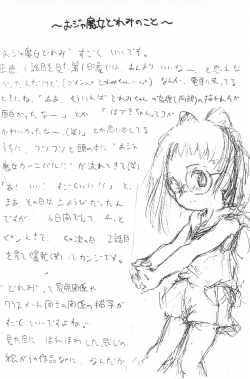 ～おジャ魔女どれみのこと～
おジャ魔女どれみ すごく いいです。
正直 1話目を見た第1印象では、あんまり いいなー と 思えな
かったんだけど、なんか、電車に乗ってる
ときにね、「ああ、そういえばどれみちゃんの家族(両親)の描かれ方が
面白かったなー」とか 「はづきちゃんってコが
かわいかったなー(笑)」とか 思い出してる
うちに、フツフツと頭の中に「おジャ
魔女カーニバル!!」が流れてきて(笑)
「あ! いい! すごくいい!!」と、
まあ その日は 土ようびだったん
ですが、
ピンときて、その次の日 2話目
を見て爆発(笑)ってカンジです。
"どれみ"って 家族関係や
クラスメート同士の関係の描写が
すごく いいですよね♪
見た目に ほわほわした感じの
絵がらの作品なのに、なんだか